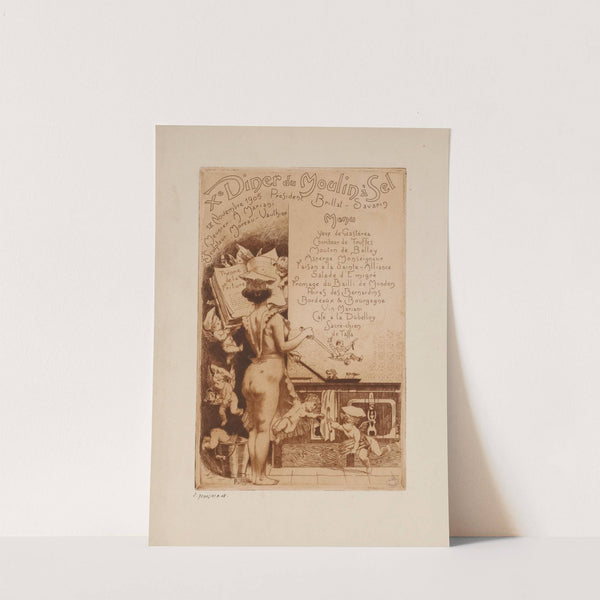 Xe Diner du Moulin à Sel
18 Novembre 1905 Président Brillat-Savarin
A. Mariani
Moreau-Vauthier
Menu
Consommé de Truffes
Mouton de Belley
Asperge Monseigneur
Faisan à la Sainte-Alliance
Salade d'Emigré
Fromage du Bailli de Mondon
Poires des Bernardins
Bordeaux & Bourgogne
Vin Mariani
Café à la Dubelloy
Sacre-chien
de Table